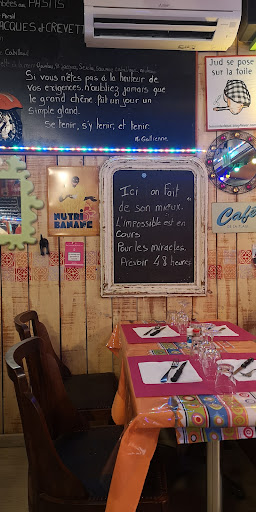 PASTIS
JACQUES et CREVETTES
Si vous n'êtes pas à la hauteur de
vos exigences, n'oubliez jamais que
le grand chêne fût un jour un
simple gland.
Se tenir, s'y tenir, et tenir.
M. Gallienne
Jud se pose
sur la toile
NUTRI
BANANE
Café
Ici on Fait
de son mieux.
L'impossible est en
Cours
Pour les miracles,
Prévoir 48 heures